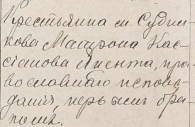 Крестьянина ст Судни
кова Матрона Кас
сианова Анента, пра
вославнаго исповѣ
данія, первымъ бра
комъ.